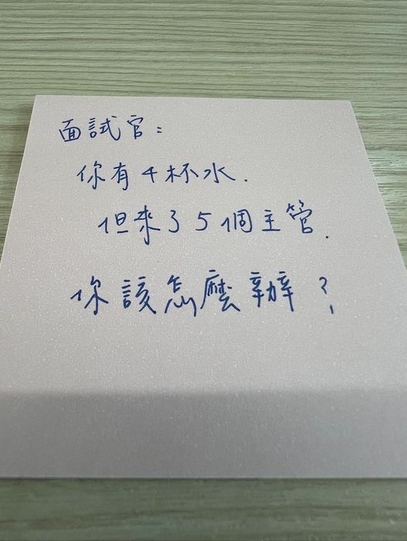 面試官：
你有4杯水.
但來了5個主管.
你該怎麼辦？